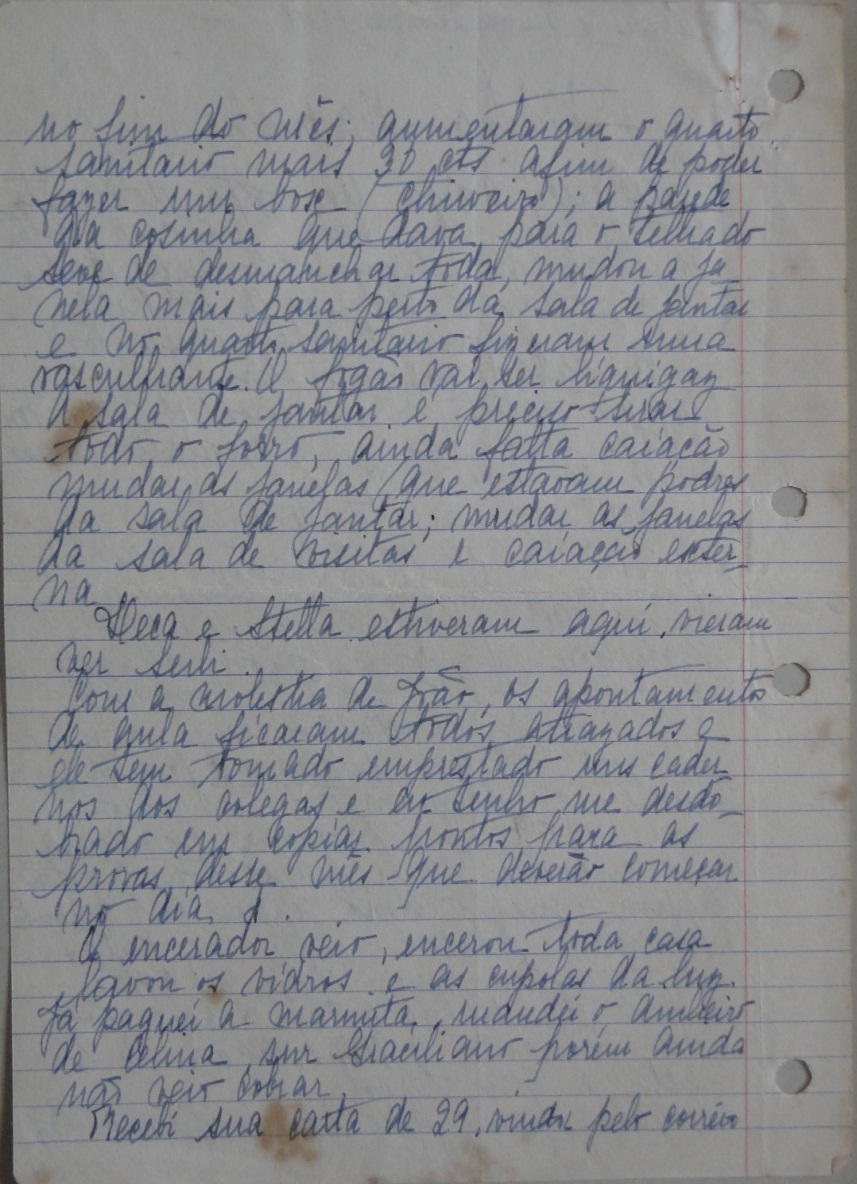 no fim do mês; aumentaram o quarto
sanitario mais 30 cts afim de poder
fazer um box (chuveiro); a parede
da cosinha que dava para o telhado
teve de desmanchar toda, mudou a ja
nela mais para perto da sala de jantar
e no quarto sanitario fizeram uma
vasculhante. O fogão vai ser liquigaz
A sala de jantar é preciso tirar
todo o forro, ainda falta caiação
mudar as janelas (que estavam podres
da sala de jantar; mudar as janelas
da sala de visitas e caiação exter-
na
Deca e Stella estiveram aqui, vieram
ver
Com a molestia de João, os apontamentos
de aula ficaram todos atrazados e
ele tem tomado emprestado uns cader
nos dos colegas e eu tenho me desdo-
brado em copiar pontos para as
provas desse mês que deverão começar
no dia
O encerador veio, encerou toda casa
lavou os vidros e as cupolas da luz.
Já paguei a marmita, mandei o dinheiro
de Celina, snr Graciliano porém ainda
não veio cobrar.
Recebi sua carta de 29, vinda pelo correio